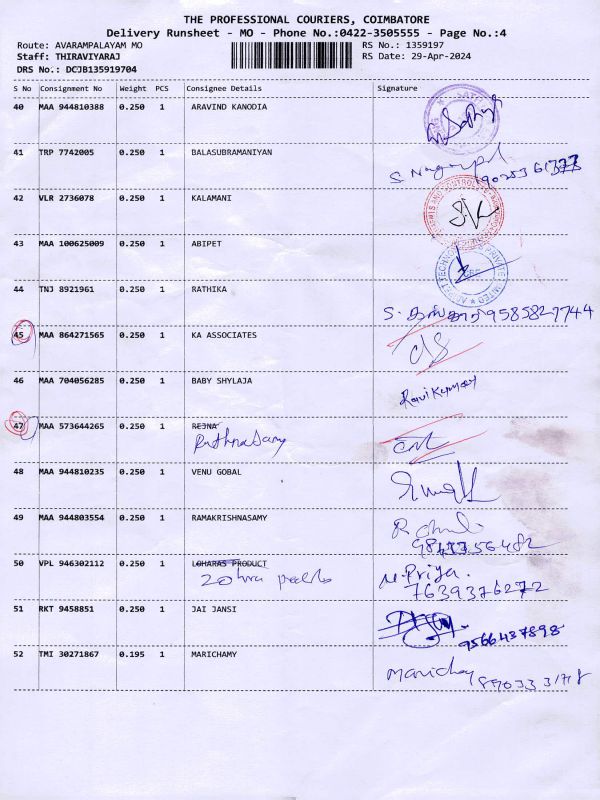 THE PROFESSIONAL COURIERS, COIMBATORE
Delivery Runsheet - MO - Phone No.:0422-3505555 - Page No.:4
Route: AVARAMPALAYAM MO RS No.: 1359197
Staff: THIRAVIYARAJ RS Date: 29-Apr-2024
DRS No.: DCJB135919704
S No Consignment No Weight PCS Consignee Details Signature
40 MAA 944810388 0.250 1 ARAVIND KANODIA
41 TRP 7742005 0.250 1 BALASUBRAMANIYAN
42 VLR 2736078 0.250 1 KALAMANI
43 MAA 100625009 0.250 1 ABIPET
44 TNJ 8921961 0.250 1 RATHIKA
9585827744
45 MAA 864271565 0.250 1 KA ASSOCIATES
46 MAA 704056285 0.250 1 BABY SHYLAJA
Ravikumar
47 MAA 573644265 0.250 1 REJNA
Rathnasamy
48 MAA 944810235 0.250 1 VENU GOBAL
49 MAA 944803554 0.250 1 RAMAKRISHNASAMY
50 VPL 946302112 0.250 1 LOHARAS PRODUCT
M. Priya.
7639376272
51 RKT 9458851 0.250 1 JAI JANSI
9566437898
52 TMI 30271867 0.195 1 MARICHAMY